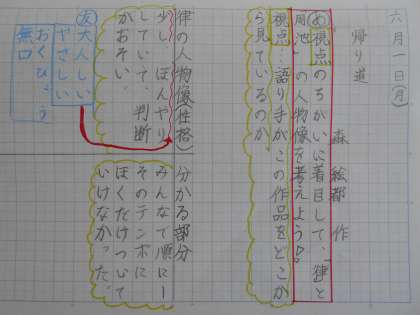 六月一日(月)
帰り道
森 絵都 作
め視点のちがいに着目して、「律」と
「周也」の人物像を考えよう。
視点…語り手がこの作品をどこか
ら見ているのか。
律の人物像(性格)
少し、ぼんやり
していて、判断
がおそい。
友大人しい
やさしい
おくびょう
無口
分かる部分
みんなで順に一
そのテンポに
ぼくだけついて
いけなかった。